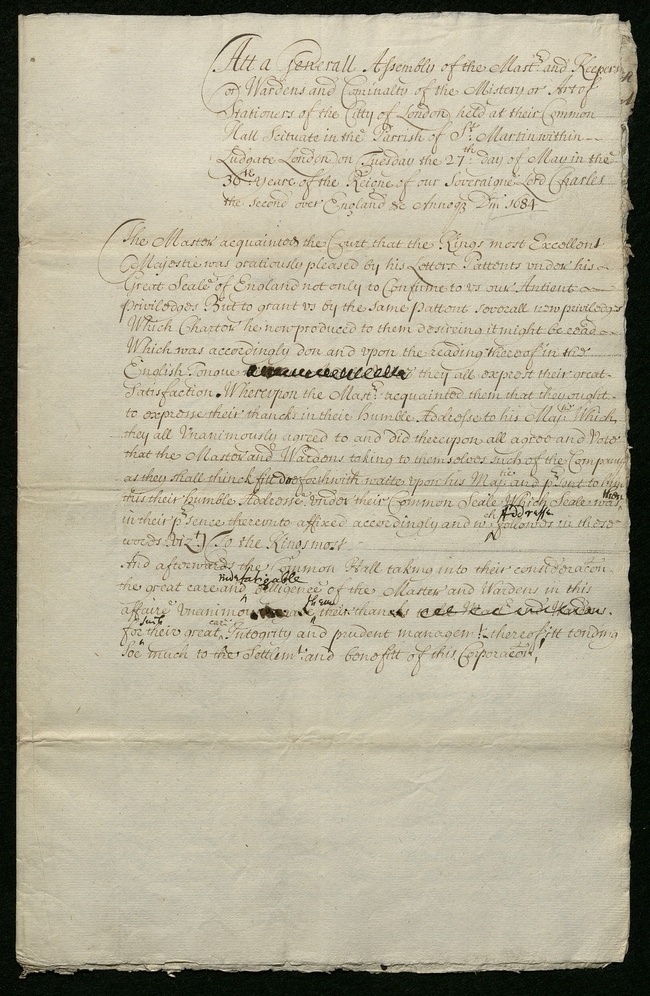 Att a Generall Assembly of the Mastr. and Keepers
or Wardens and Cominalty of the Mistery or Art of
Stationers of the Citty of London held at their Common
Hall Scituate in the Parrish of St. Martin within
Ludgate London on Tuesday the 27th day of May in the
36th yeare of the Reigne of our Soveraigne Lord Charles
the second over England &c Annoq Dni 1684
The Master acquainted the Court that the Kings most Excellent
Majestie was gratiously pleased by his Letters Pattents under his
Great Seale of England not only to Confirme to us our Antient
priviledges But to grant us by the same pattent severall new priviledges
Which Charter he now produced to them desireing it might be read
Which was accordingly don and upon the reading thereof in the
English Tongue they all exprest their great
Satisfaction. Whereupon the Mastr. acquainted them that they ought
to expresse their thancks in their humble Addresse to his Majtie Which
they all Unanimously agreed to and did thereupon all agree and Vote
that the Master and Wardens taking to themselves such of the Company
as they shall thinck fitt doe forthwith waite upon his Majtie and psent to him
this their humble Addresse under their Common Seale Which Seale was then
in their psence thereunto affixed accordingly and wch Addresse followes in these
words (vizt.) To the Kings most
And afterwards the Common Hall taking into their consideracon
the great care and indefatigable dilligence of the Master and Wardens in this
affaire Unanimou them their thancks
for their such great care Integrity and prudent managemt. thereof itt tending
soe much to the Settlemt. and benefitt of this Corporacon